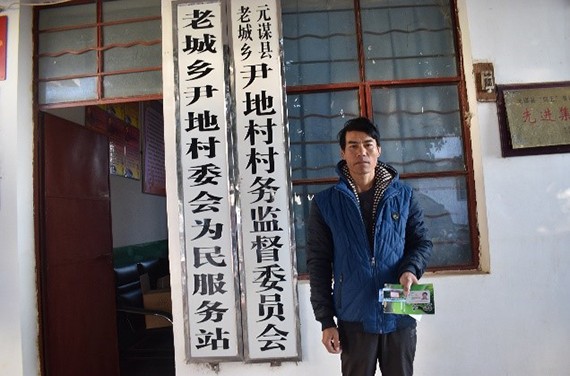 老城乡尹地村委会为民服务站
元谋县
老城乡
尹地村村务监督委员会
先进集